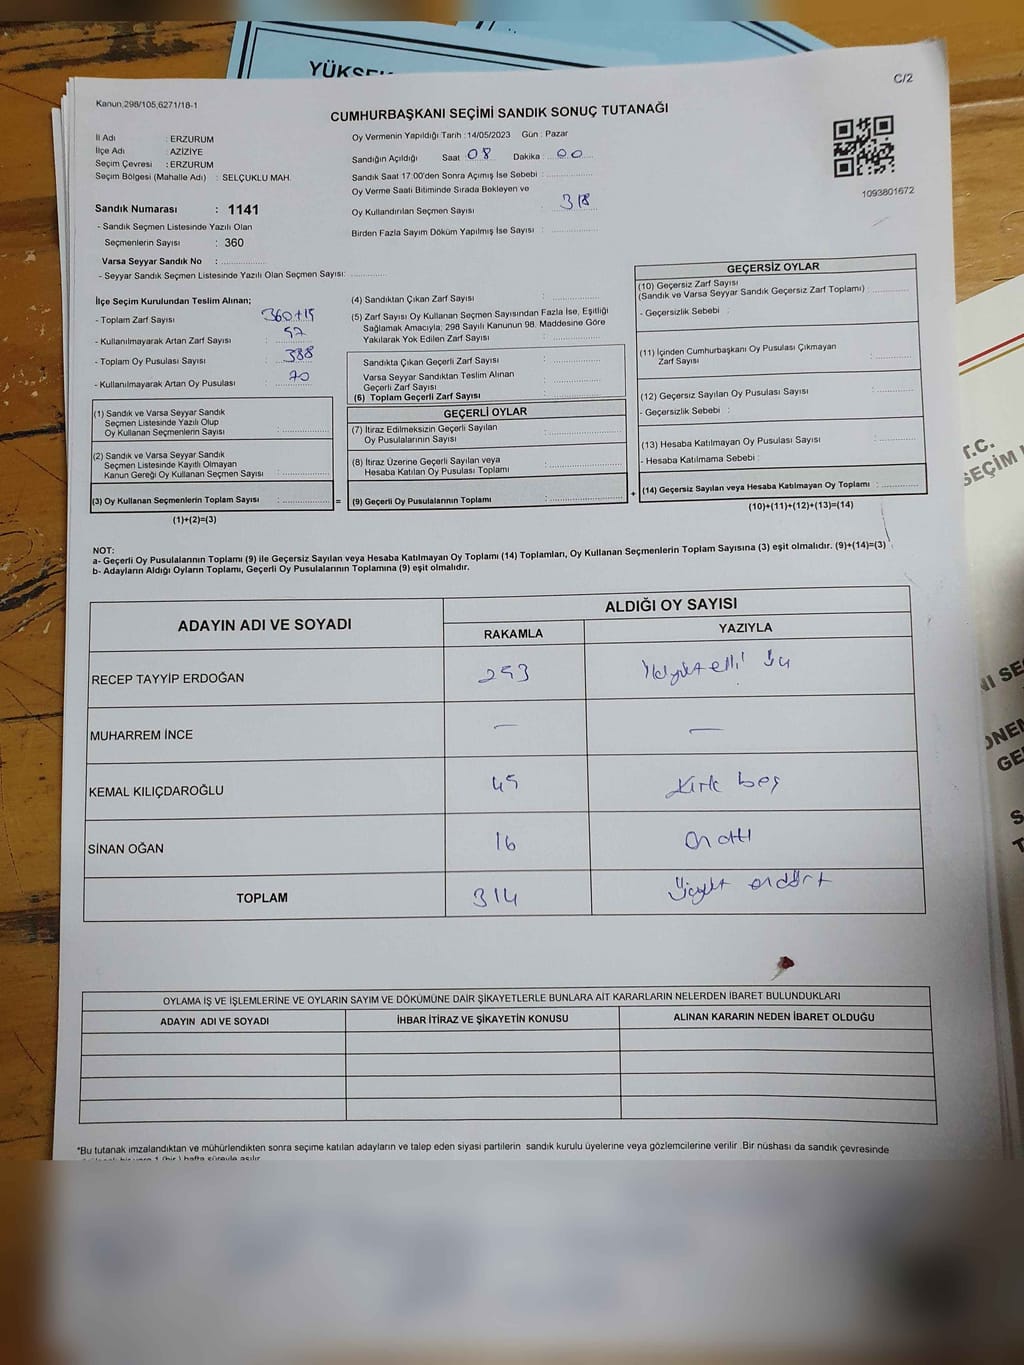 YÜKSEK
C/2
Kanun,298/105,6271/18-1
CUMHURBAŞKANI SEÇİMİ SANDIK SONUÇ TUTANAĞI
İl Adı : ERZURUM
İlçe Adı : AZİZİYE
Seçim Çevresi : ERZURUM
Seçim Bölgesi (Mahalle Adı) : SELÇUKLU MAH.
Oy Vermenin Yapıldığı Tarih : 14/05/2023 Gün : Pazar
Sandığın Açıldığı Saat 08 Dakika : 00
Sandık Saat 17:00'den Sonra Açımış İse Sebebi :
Oy Verme Saati Bitiminde Sırada Bekleyen ve
Oy Kullandırılan Seçmen Sayısı 318
Birden Fazla Sayım Döküm Yapılmış İse Sayısı :
1093801672
Sandık Numarası : 1141
- Sandık Seçmen Listesinde Yazılı Olan
Seçmenlerin Sayısı : 360
Varsa Seyyar Sandık No :
- Seyyar Sandık Seçmen Listesinde Yazılı Olan Seçmen Sayısı:
İlçe Seçim Kurulundan Teslim Alınan;
- Toplam Zarf Sayısı : 360+15
- Kullanılmayarak Artan Zarf Sayısı : 57
- Toplam Oy Pusulası Sayısı : 388
- Kullanılmayarak Artan Oy Pusulası : 70
(1) Sandık ve Varsa Seyyar Sandık
Seçmen Listesinde Yazılı Olup
Oy Kullanan Seçmenlerin Sayısı :
(2) Sandık ve Varsa Seyyar Sandık
Seçmen Listesinde Kayıtlı Olmayan
Kanun Gereği Oy Kullanan Seçmen Sayısı :
(3) Oy Kullanan Seçmenlerin Toplam Sayısı : =
(1)+(2)=(3)
(4) Sandıktan Çıkan Zarf Sayısı :
(5) Zarf Sayısı Oy Kullanan Seçmen Sayısından Fazla İse, Eşitliği
Sağlamak Amacıyla; 298 Sayılı Kanunun 98. Maddesine Göre
Yakılarak Yok Edilen Zarf Sayısı :
Sandıkta Çıkan Geçerli Zarf Sayısı :
Varsa Seyyar Sandıktan Teslim Alınan
Geçerli Zarf Sayısı :
(6) Toplam Geçerli Zarf Sayısı :
GEÇERLİ OYLAR
(7) İtiraz Edilmeksizin Geçerli Sayılan
Oy Pusulalarının Sayısı :
(8) İtiraz Üzerine Geçerli Sayılan veya
Hesaba Katılan Oy Pusulası Toplamı :
(9) Geçerli Oy Pusulalarının Toplamı : +
GEÇERSİZ OYLAR
(10) Geçersiz Zarf Sayısı
(Sandık ve Varsa Seyyar Sandık Geçersiz Zarf Toplamı) :
- Geçersizlik Sebebi :
(11) İçinden Cumhurbaşkanı Oy Pusulası Çıkmayan
Zarf Sayısı :
(12) Geçersiz Sayılan Oy Pusulası Sayısı :
- Geçersizlik Sebebi :
(13) Hesaba Katılmayan Oy Pusulası Sayısı :
- Hesaba Katılmama Sebebi :
(14) Geçersiz Sayılan veya Hesaba Katılmayan Oy Toplamı :
(10)+(11)+(12)+(13)=(14)
NOT:
a- Geçerli Oy Pusulalarının Toplamı (9) ile Geçersiz Sayılan veya Hesaba Katılmayan Oy Toplamı (14) Toplamları, Oy Kullanan Seçmenlerin Toplam Sayısına (3) eşit olmalıdır. (9)+(14)=(3)
b- Adayların Aldığı Oyların Toplamı, Geçerli Oy Pusulalarının Toplamına (9) eşit olmalıdır.
ADAYIN ADI VE SOYADI ALDIĞI OY SAYISI
RAKAMLA YAZIYLA
RECEP TAYYİP ERDOĞAN 253 İkiyüz elli üç
MUHARREM İNCE — —
KEMAL KILIÇDAROĞLU 45 Kırk beş
SİNAN OĞAN 16 On altı
TOPLAM 314 Üçyüz ondört
OYLAMA İŞ VE İŞLEMLERİNE VE OYLARIN SAYIM VE DÖKÜMÜNE DAİR ŞİKAYETLERLE BUNLARA AİT KARARLARIN NELERDEN İBARET BULUNDUKLARI
ADAYIN ADI VE SOYADI İHBAR İTİRAZ VE ŞİKAYETİN KONUSU ALINAN KARARIN NEDEN İBARET OLDUĞU
*Bu tutanak imzalandıktan ve mühürlendikten sonra seçime katılan adayların ve talep eden siyasi partilerin sandık kurulu üyelerine veya gözlemcilerine verilir .Bir nüshası da sandık çevresinde
T.C.
SEÇİM